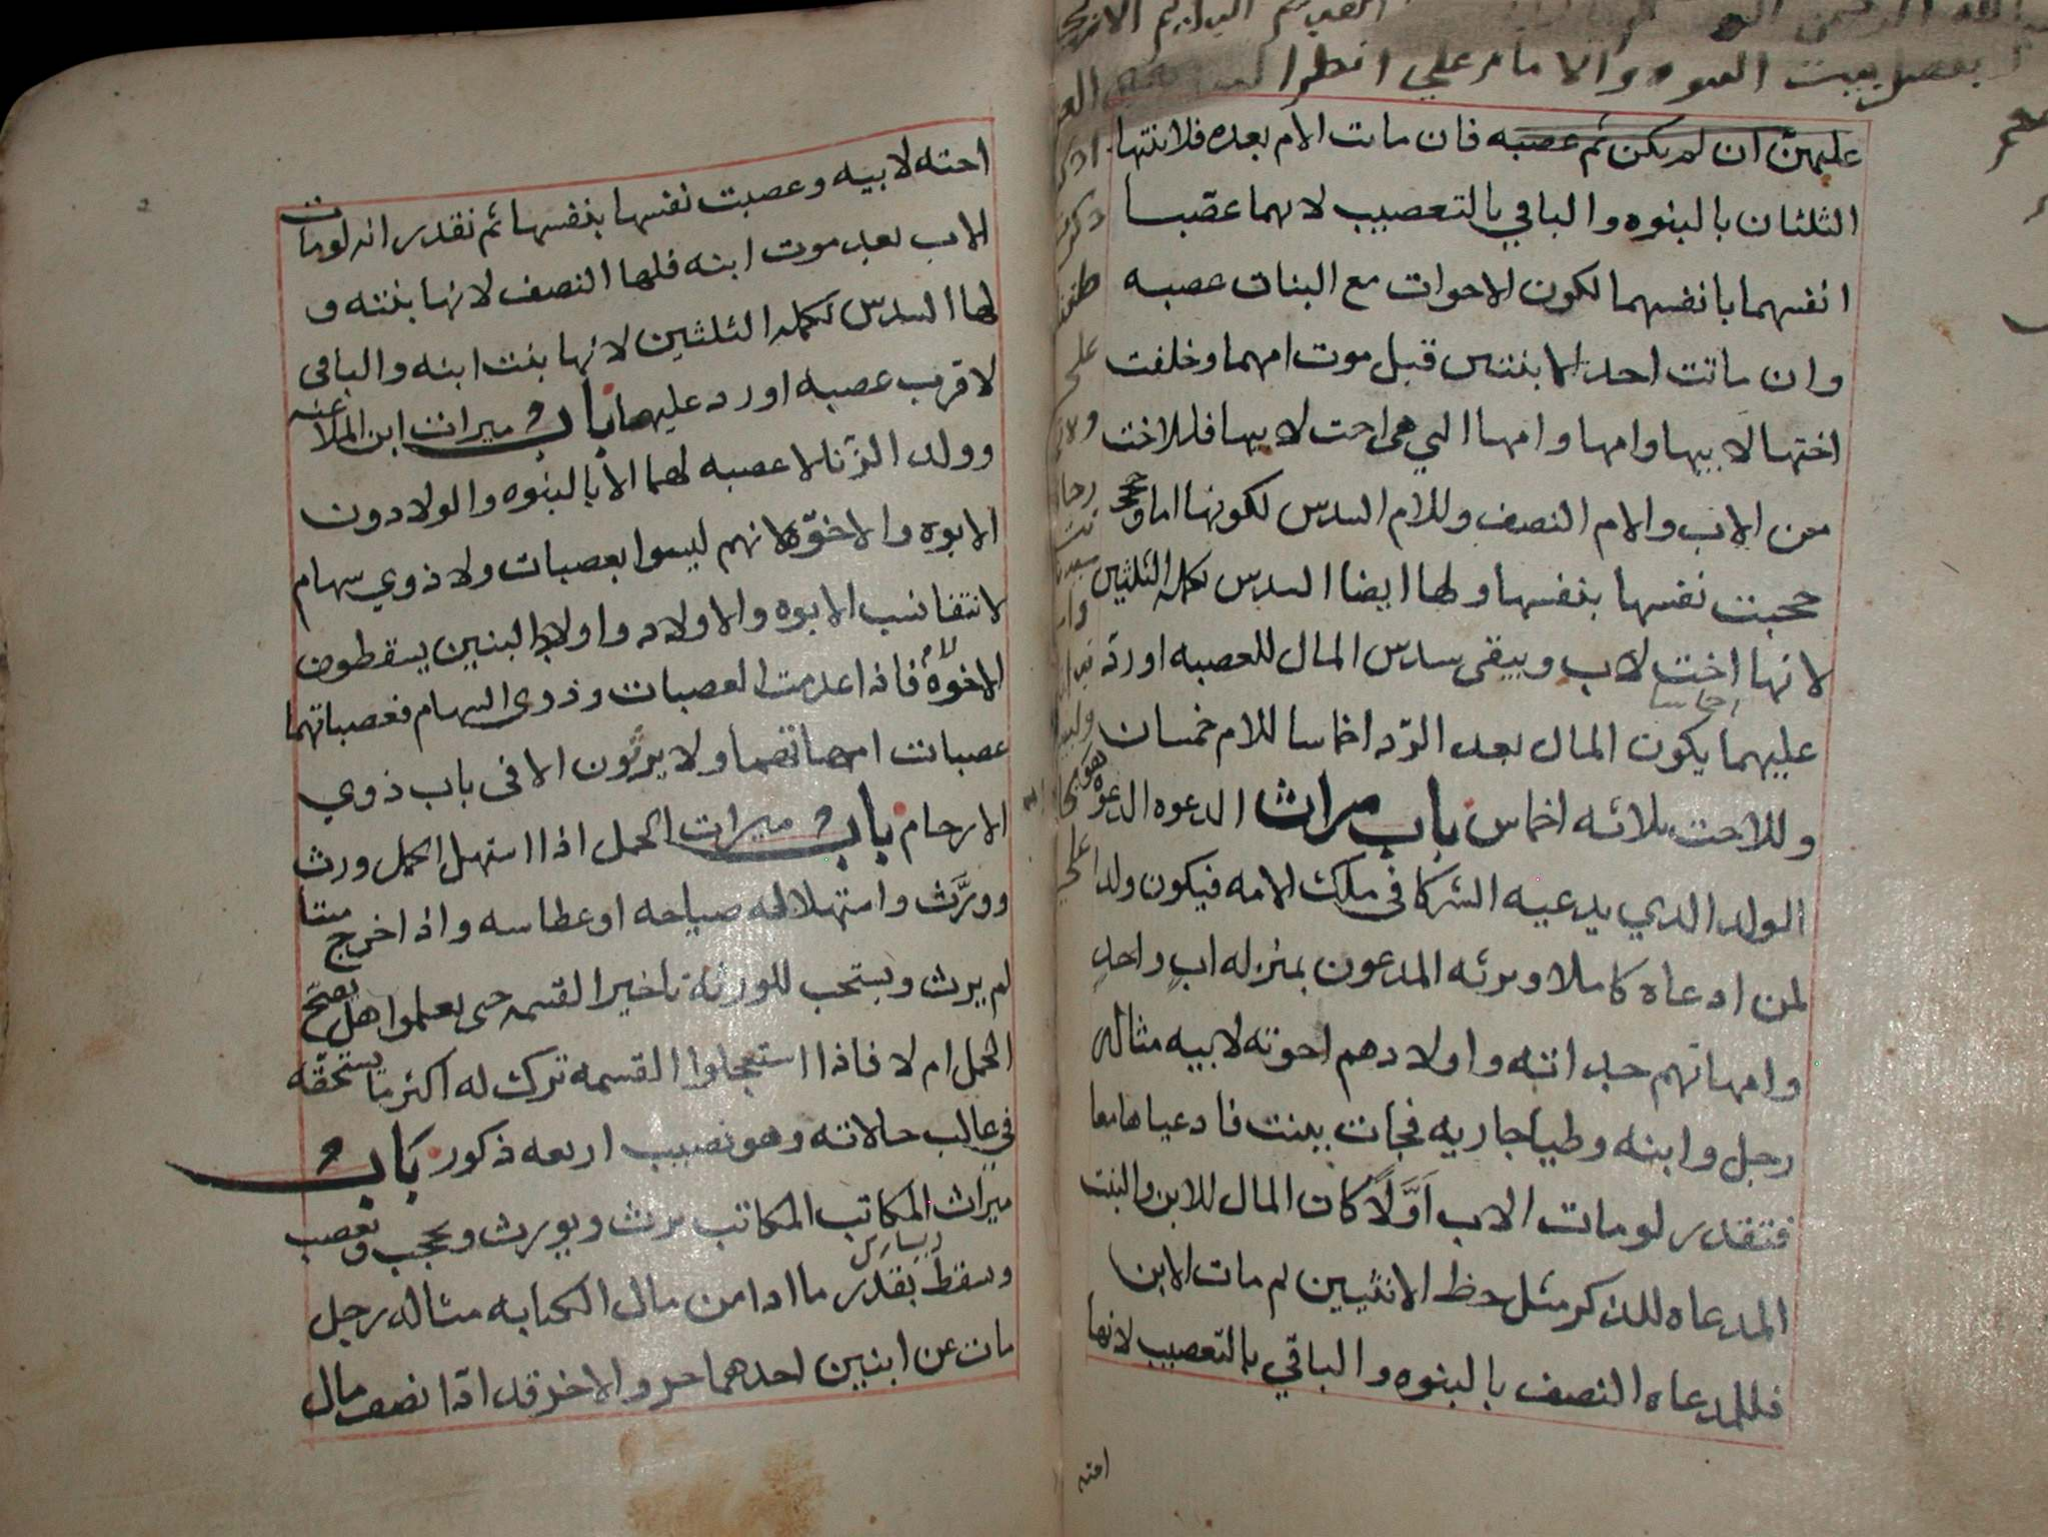 عليهن ان لم يكن ثم عصبه فان ماتت الام بعده فلابنتها
الثلثان بالبنوه والباقي بالتعصيب لانهما عصبا
انفسهما بانفسهما لكون الاخوات مع البنات عصبه
وان ماتت احد الابنتين قبل موت امهما وخلفت
اختها لابيها وامها وامها التي هي اخت لابيها فللاخت
من الاب والام النصف وللام السدس لكونها اما
حجبت نفسها بنفسها ولها ايضا السدس تكملة الثلثين
لانها اخت لاب ويبقى سدس المال للعصبه او رد
عليهما يكون المال بعد الرد اخماسا للام خمسان
وللاخت ثلاثه اخماس باب ميراث الدعوه الدعوه هو
الولد الذي يدعيه الشركا في ملك الامه فيكون ولدا
لمن ادعاه كاملا ويرثه المدعون بمنزله اب واحد
وامهاتهم جداته واولادهم اخوته لابيه مثاله
رجل وابنه وطيا جاريه فجات ببنت فادعياها معا
فتقدر لو مات الاب اولا كان المال للابن والبنت
المدعاه للذكر مثل حظ الانثيين ثم مات الابن
فللمدعاه النصف بالبنوه والباقي بالتعصيب لانها
اخته
اخته لابيه وعصبت نفسها بنفسها ثم نقدر انه لو مات
الاب بعد موت ابنه فلها النصف لانها بنته و
لها السدس تكملة الثلثين لانها بنت ابنه والباقي
لاقرب عصبه او رد عليهما باب ميراث ابن الملاعنه
وولد الزنا لا عصبه لهما الا بالبنوه والولا دون
الابوه والاخوه لانهم ليسوا بعصبات ولا ذوي سهام
لانتفا نسب الابوه والاولاد واولاد البنين يسقطون
الاخوه لام فاذا عدمت العصبات وذوى السهام فعصباتهما
عصبات امهاتهما ولا يرثون الا في باب ذوي
الارحام باب ميراث الحمل اذا استهل الحمل ورث
وورث واستهلاله صياحه او عطاسه واذا خرج ميتا
لم يرث ويستحب للورثة تاخير القسمه حتى يعلموا هل يصح
الحمل ام لا فاذا استعجلوا القسمه ترك له اكثر ما يستحقه
في غالب حالاته وهو نصيب اربعه ذكور باب
ميراث المكاتب المكاتب يرث ويورث ويحجب ويعصب
ويسقط بقدر ما ادا من مال الكتابه مثاله رجل
مات عن ابنين احدهما حر والاخر قد ادا نصف مال